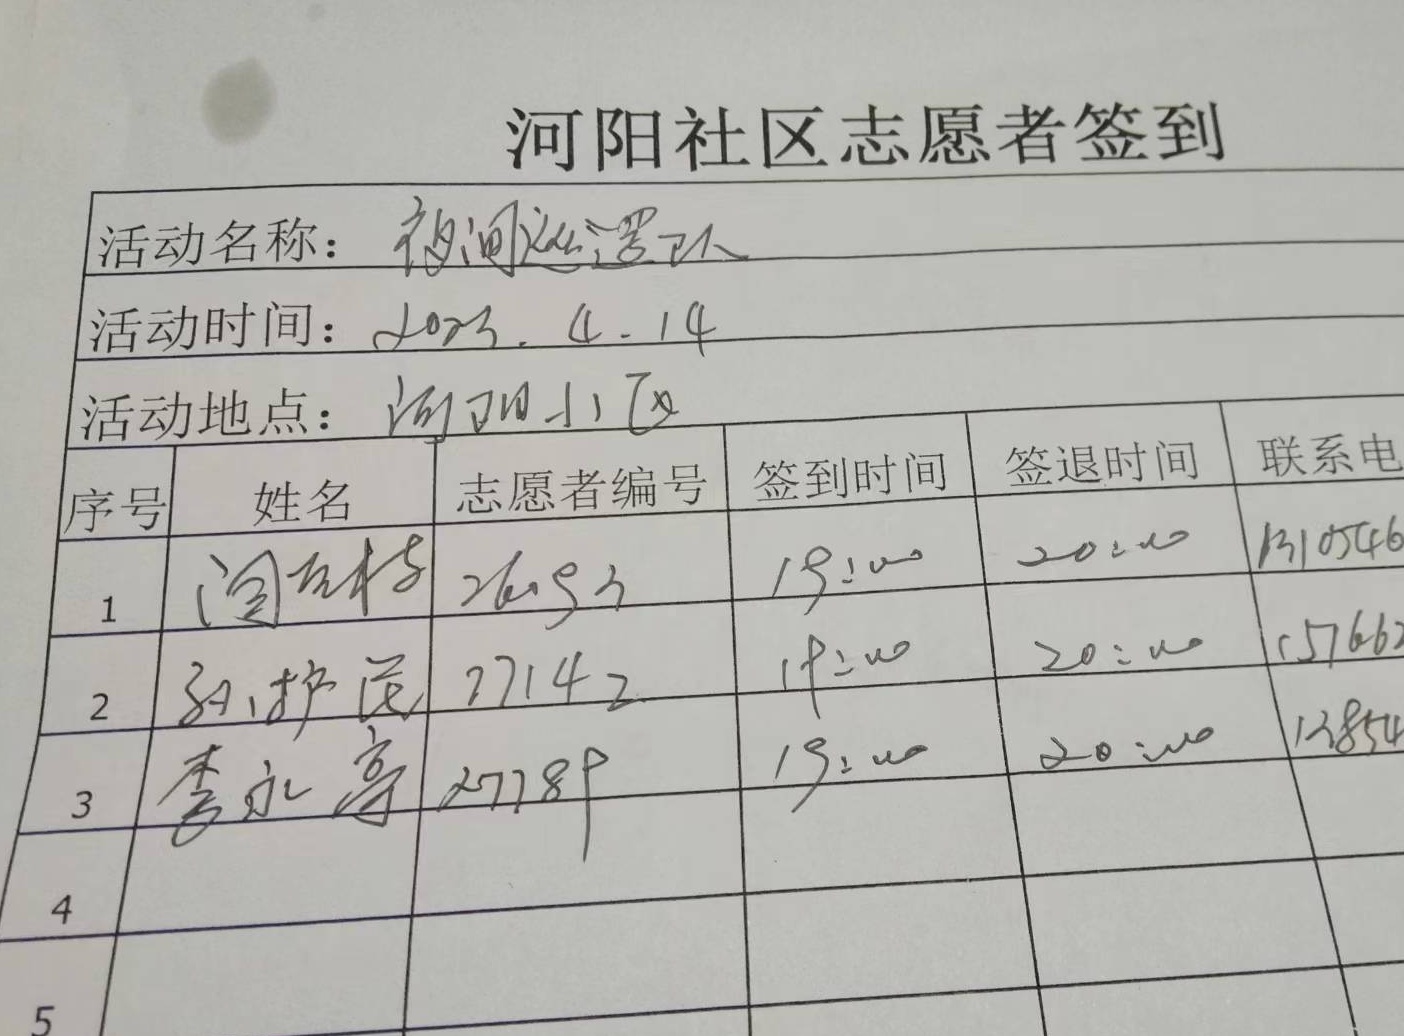 河阳社区志愿者签到
活动名称：夜间巡逻队
活动时间：2023.4.14
活动地点：河阳小区
序号 姓名 志愿者编号 签到时间 签退时间 联系电
1 26093 19:00 20:00 1310546
2 孙护民 27142 19:00 20:00 157662
3 李永亭 27789 19:00 20:00 13854
4
5